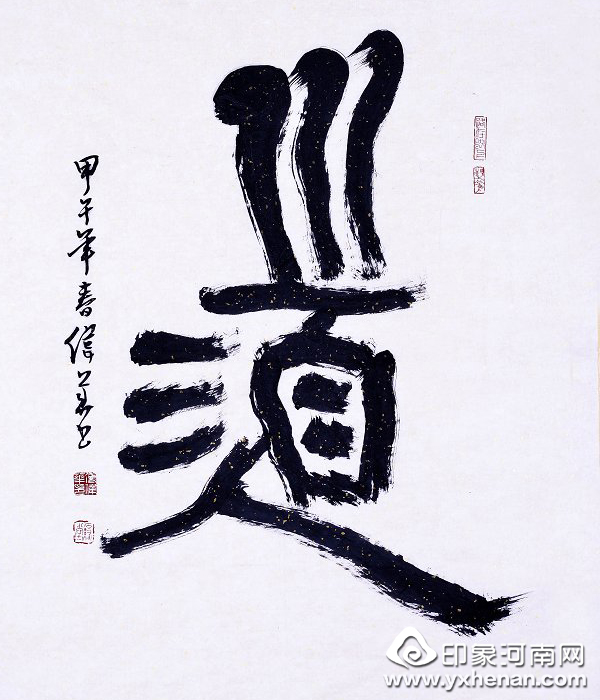 道
甲午年春伟义书
印象河南网
www.yxhenan.com